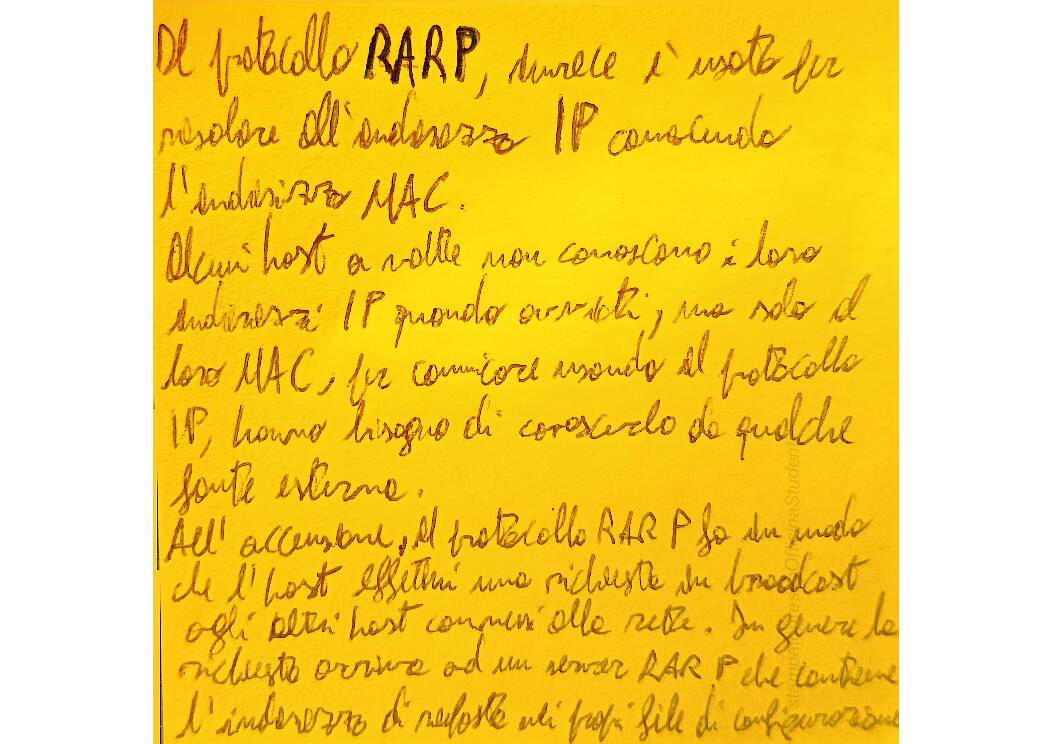 Il protocollo RARP, invece è usato per
risalire all'indirizzo IP conoscendo
l'indirizzo MAC.
Alcuni host a volte non conoscono i loro
indirizzi IP quando avviati, ma solo il
loro MAC, per comunicare usando il protocollo
IP, hanno bisogno di conoscerlo da qualche
fonte esterna.
All'accensione, il protocollo RARP fa in modo
che l'host effettui una richiesta in broadcast
agli altri host connessi alla rete. In genere la
richiesta arriva ad un server RARP che contiene
l'indirizzo di risposta nei propri file di configurazione